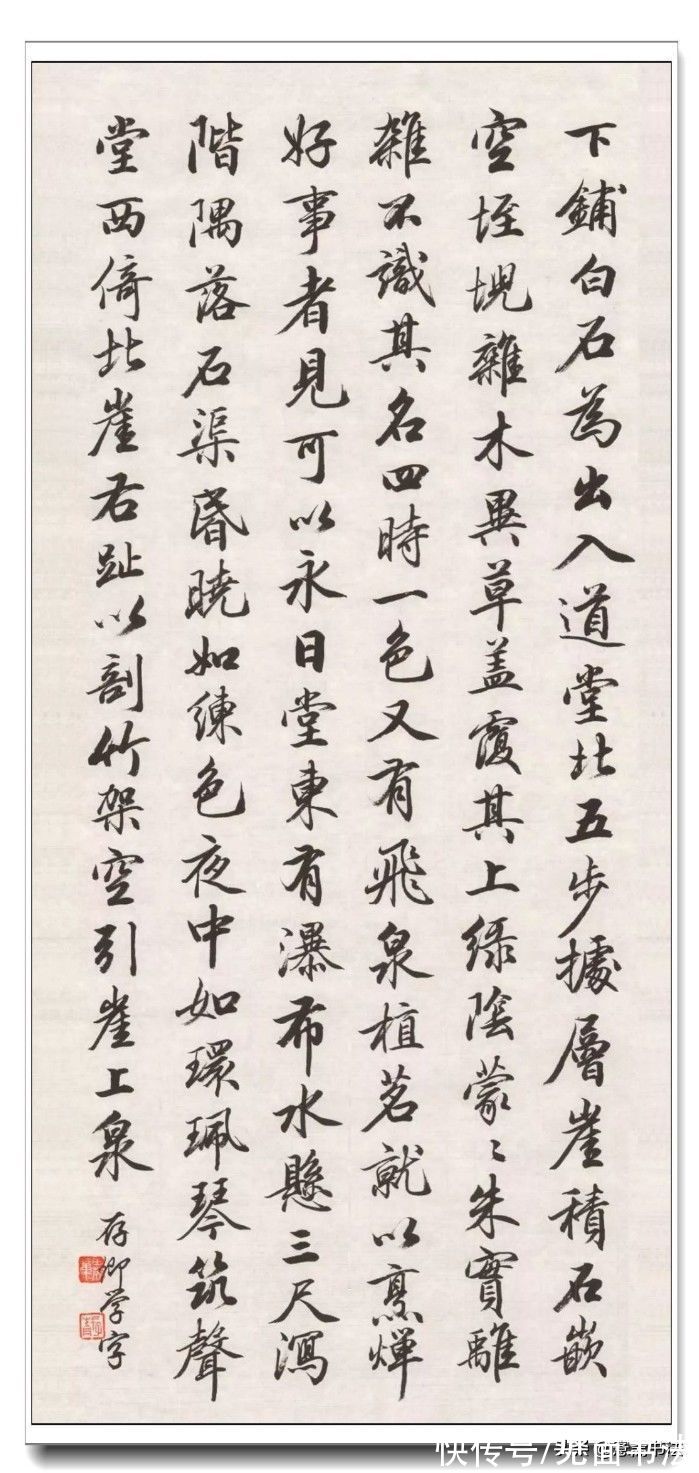 下鋪白石為出入道堂北五步據層崖積石嵌
空垤堄雜木異草盖覆其上綠陰蒙〻朱實離
離不識其名四時一色又有飛泉植茗就以烹燀
好事者見可以永日堂東有瀑布水懸三尺瀉
階隅落石渠昏曉如練色夜中如環珮琴筑聲
堂西倚北崖右趾以剖竹架空引崖上泉
存卿学字
快传号/见面书法